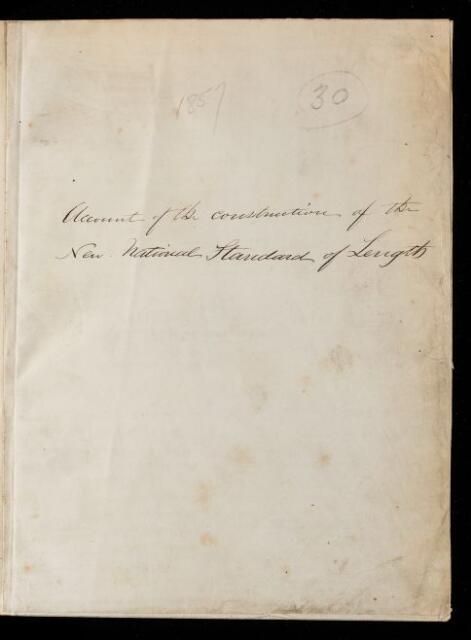 1857
30
Account of the construction of the
New National Standard of Length